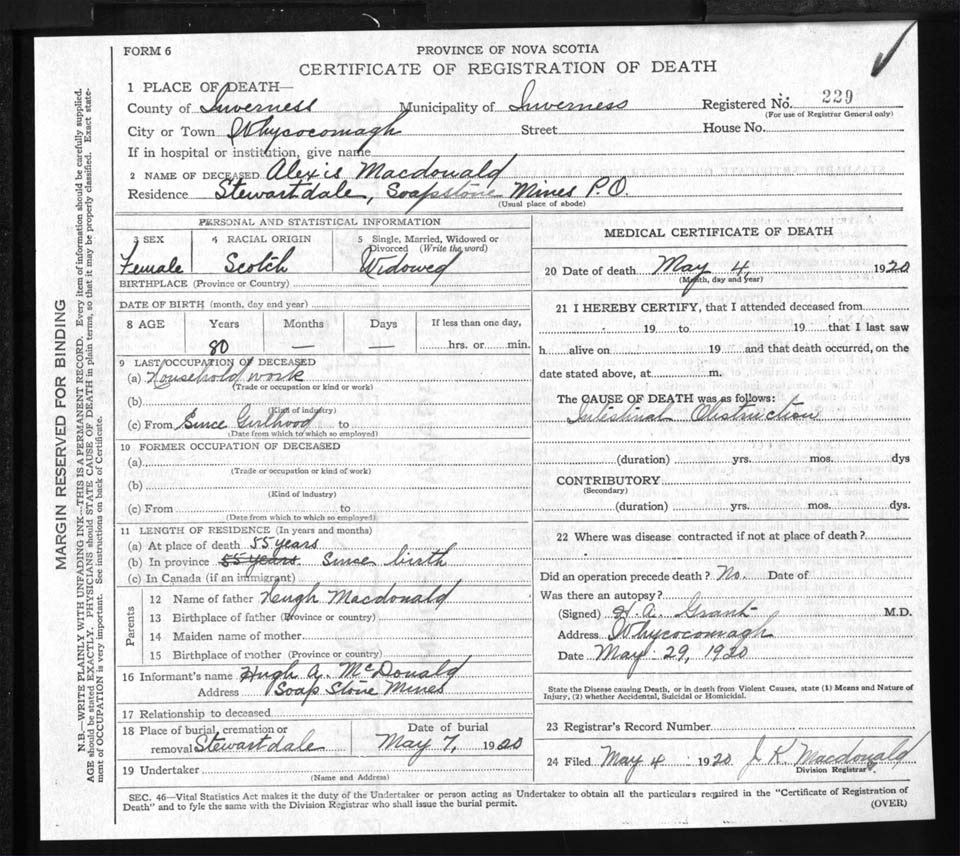 FORM 6
PROVINCE OF NOVA SCOTIA
CERTIFICATE OF REGISTRATION OF DEATH
1 PLACE OF DEATH—
County of Inverness Municipality of Inverness Registered No. 229
(For use of Registrar General only)
City or Town Whycocomagh Street House No.
If in hospital or institution, give name
2 NAME OF DECEASED Alexis Macdonald
Residence Stewartdale, Soapstone Mines P.O.
(Usual place of abode)
PERSONAL AND STATISTICAL INFORMATION
3 SEX 4 RACIAL ORIGIN 5 Single, Married, Widowed or Divorced (Write the word)
Female Scotch Widowed
BIRTHPLACE (Province or Country)
DATE OF BIRTH (month, day and year)
8 AGE Years Months Days If less than one day,
80 — — hrs. or min.
9 LAST OCCUPATION OF DECEASED
(a) Household work
(Trade or occupation or kind of work)
(b)
(Kind of industry)
(c) From Since Girlhood to
(Date from which to which so employed)
10 FORMER OCCUPATION OF DECEASED
(a)
(Trade or occupation or kind of work)
(b)
(Kind of industry)
(c) From to
(Date from which to which so employed)
11 LENGTH OF RESIDENCE (In years and months)
(a) At place of death 55 years
(b) In province 55 years. Since birth
(c) In Canada (if an immigrant)
Parents
12 Name of father Hugh Macdonald
13 Birthplace of father (Province or country)
14 Maiden name of mother
15 Birthplace of mother (Province or country)
16 Informant's name Hugh A. McDonald
Address Soap Stone Mines
17 Relationship to deceased
18 Place of burial, cremation or removal Stewartdale Date of burial May 7, 1920
19 Undertaker
(Name and Address)
MEDICAL CERTIFICATE OF DEATH
20 Date of death May 4, 1920
(Month, day and year)
21 I HEREBY CERTIFY, that I attended deceased from
19 to 19 that I last saw
h alive on 19 and that death occurred, on the
date stated above, at m.
The CAUSE OF DEATH was as follows:
Intestinal Obstruction
(duration) yrs. mos. dys
CONTRIBUTORY
(Secondary)
(duration) yrs. mos. dys.
22 Where was disease contracted if not at place of death?
Did an operation precede death? No. Date of
Was there an autopsy?
(Signed) H. A. Grant M.D.
Address Whycocomagh
Date May 29, 1920
State the Disease causing Death, or in death from Violent Causes, state (1) Means and Nature of
Injury, (2) whether Accidental, Suicidal or Homicidal.
23 Registrar's Record Number
24 Filed May 4 1920 J K Macdonald
Division Registrar.
SEC. 46—Vital Statistics Act makes it the duty of the Undertaker or person acting as Undertaker to obtain all the particulars required in the "Certificate of Registration of
Death" and to fyle the same with the Division Registrar who shall issue the burial permit.
(OVER)
MARGIN RESERVED FOR BINDING
N.B.—WRITE PLAINLY WITH UNFADING INK—THIS IS A PERMANENT RECORD. Every item of information should be carefully supplied.
AGE should be stated EXACTLY. PHYSICIANS should STATE CAUSE OF DEATH in plain terms, so that it may be properly classified. Exact state-
ment of OCCUPATION is very important. See instructions on back of Certificate.